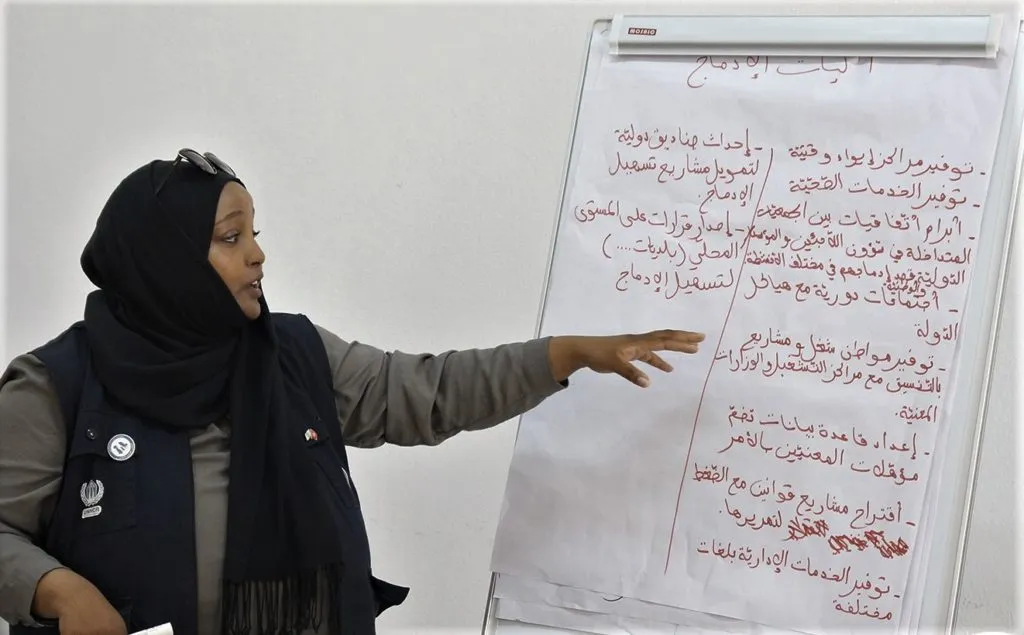 MOBILO
آليات الإدماج
- توفير مراكز إيواء وقتيّة
- توفير الخدمات الصّحّيّة
- أبرام أتفاقيات بين الجمعيّات
المتداخلة في شؤون اللاجئين والمؤسسات
الدوليّة والوطنيّة قصد إدماجهم في مختلف الأنشطة
- أجتماعات دوريّة مع هياكل
الدولة
- توفير مواطن شغل ومشاريع
بالتنسيق مع مراكز التشغيل والوزارات
المعنيّة.
- إعداد قاعدة بيانات تضمّ
مؤهّلات المعنيّين بالأمر
- أقتراح مشاريع قوانين مع الضّغط
لتمريرها.
- توفير الخدمات الإداريّة بلغات
مختلفة
- إحداث صناديق دوليّة
لتمويل مشاريع تسهيل
الإدماج.
- إصدار قرارات على المستوى
المحلّي (بلديات....)
لتسهيل الإدماج
UNHCR